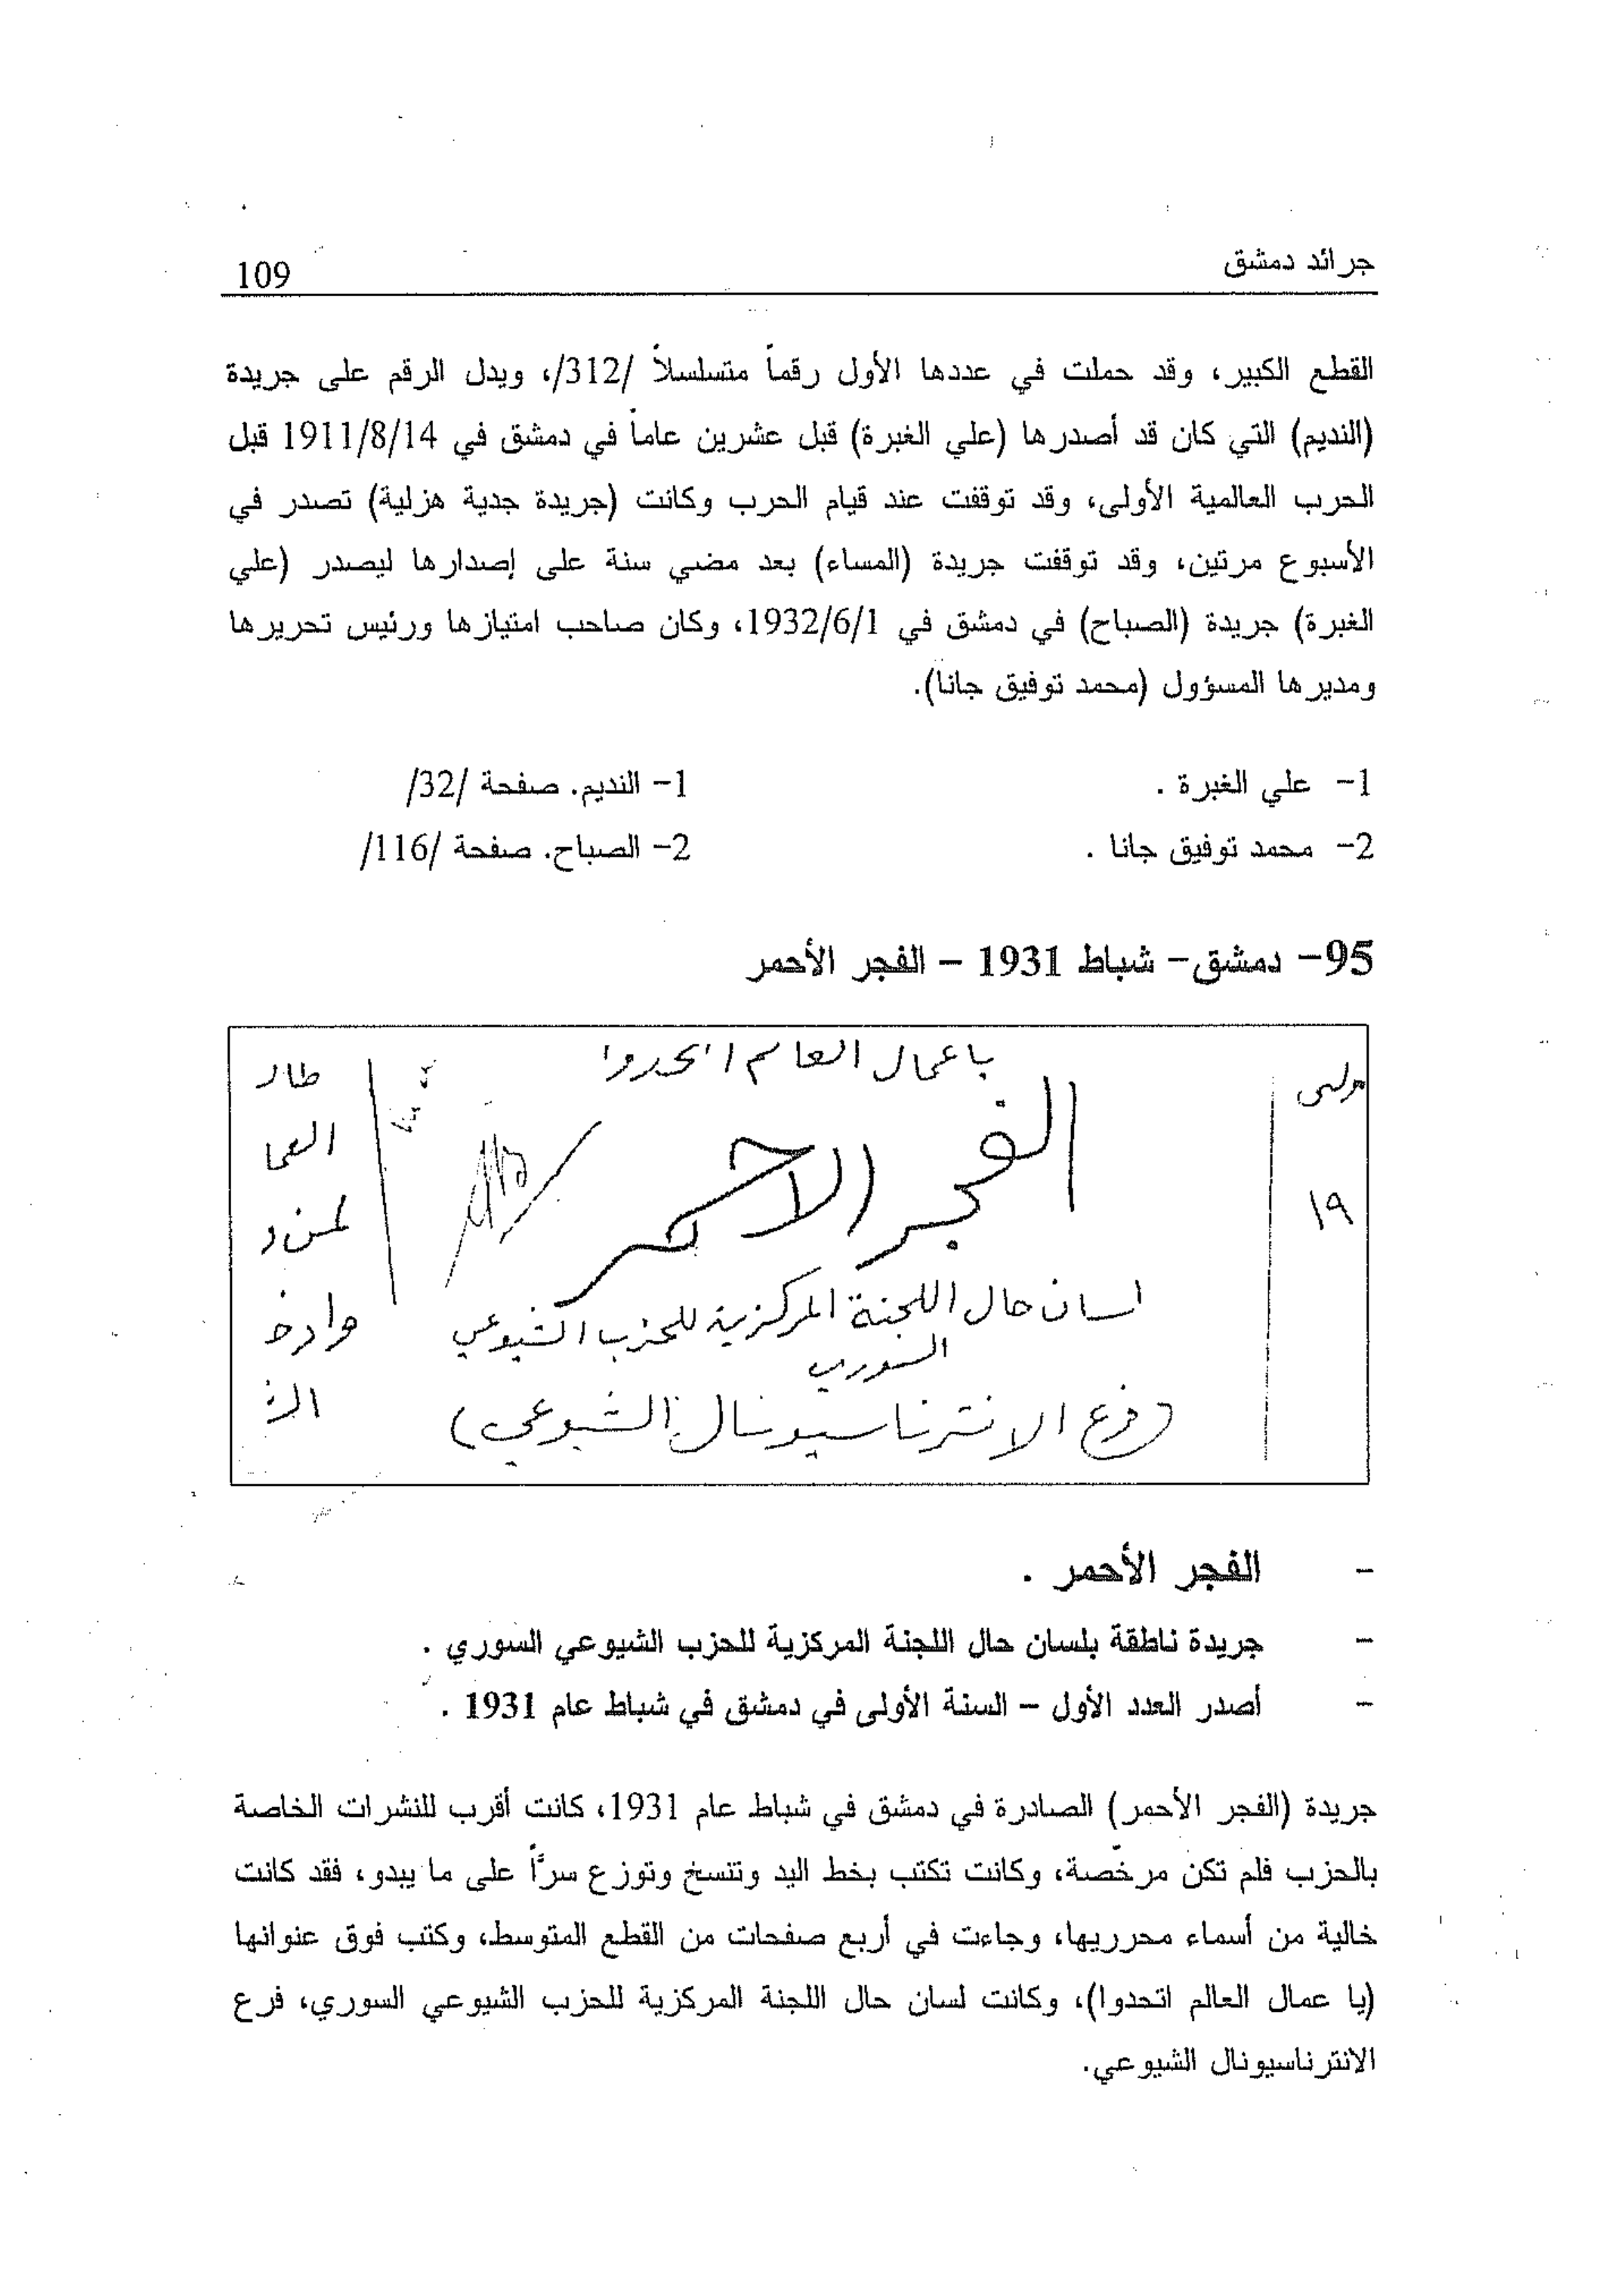 جرائد دمشق 109
القطع الكبير، وقد حملت في عددها الأول رقماً متسلسلاً /312/، ويدل الرقم على جريدة
(النديم) التي كان قد أصدرها (علي الغبرة) قبل عشرين عاماً في دمشق في 1911/8/14 قبل
الحرب العالمية الأولى، وقد توقفت عند قيام الحرب وكانت (جريدة جدية هزلية) تصدر في
الأسبوع مرتين، وقد توقفت جريدة (المساء) بعد مضي سنة على إصدارها ليصدر (علي
الغبرة) جريدة (الصباح) في دمشق في 1932/6/1، وكان صاحب امتيازها ورئيس تحريرها
ومديرها المسؤول (محمد توفيق جانا).
1- علي الغبرة . 1- النديم. صفحة /32/
2- محمد توفيق جانا . 2- الصباح. صفحة /116/
95- دمشق- شباط 1931 - الفجر الأحمر
يا عمال العالم اتحدوا
الفجر الاحمر
لسان حال اللجنة المركزية للحزب الشيوعي
السوري
(فرع الانترناسيونال الشيوعي)
١٩
طار
العما
- الفجر الأحمر .
- جريدة ناطقة بلسان حال اللجنة المركزية للحزب الشيوعي السوري .
- أصدر العدد الأول - السنة الأولى في دمشق في شباط عام 1931 .
جريدة (الفجر الأحمر) الصادرة في دمشق في شباط عام 1931، كانت أقرب للنشرات الخاصة
بالحزب فلم تكن مرخّصة، وكانت تكتب بخط اليد وتنسخ وتوزع سرّاً على ما يبدو، فقد كانت
خالية من أسماء محرريها، وجاءت في أربع صفحات من القطع المتوسط، وكتب فوق عنوانها
(يا عمال العالم اتحدوا)، وكانت لسان حال اللجنة المركزية للحزب الشيوعي السوري، فرع
الانترناسيونال الشيوعي.